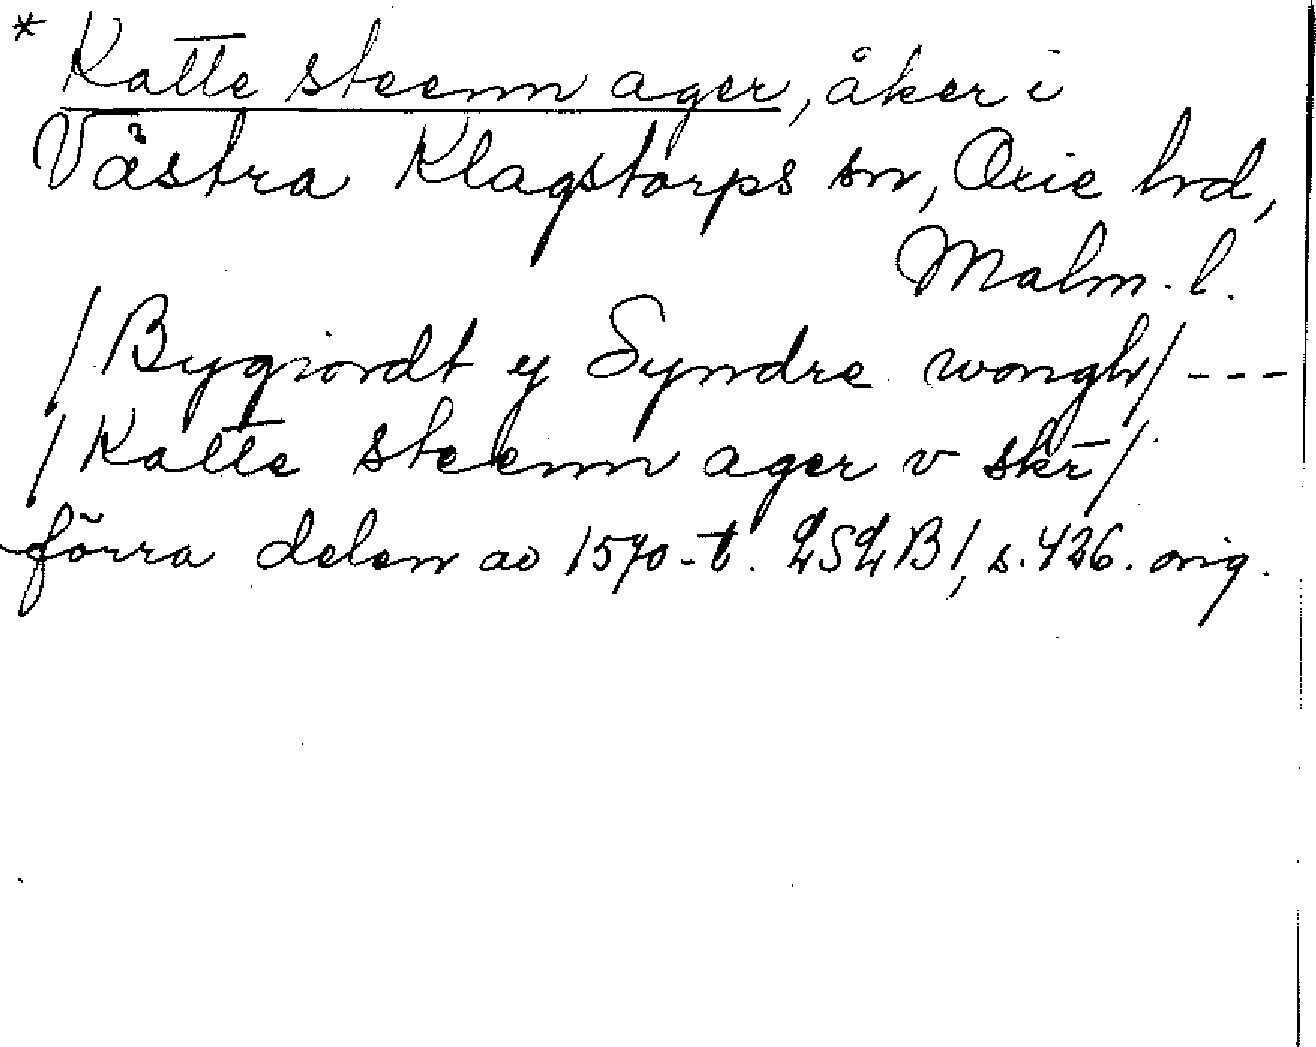 * Katte steenn ager, åker i
Västra Klagstorps sn, Oxie hrd,
Malm. l.
/Bygiordt y Syndre wongh/ ---
/Katte steenn ager v skr/
förra delen av 1570-t. LSLB1, s. 426. orig.